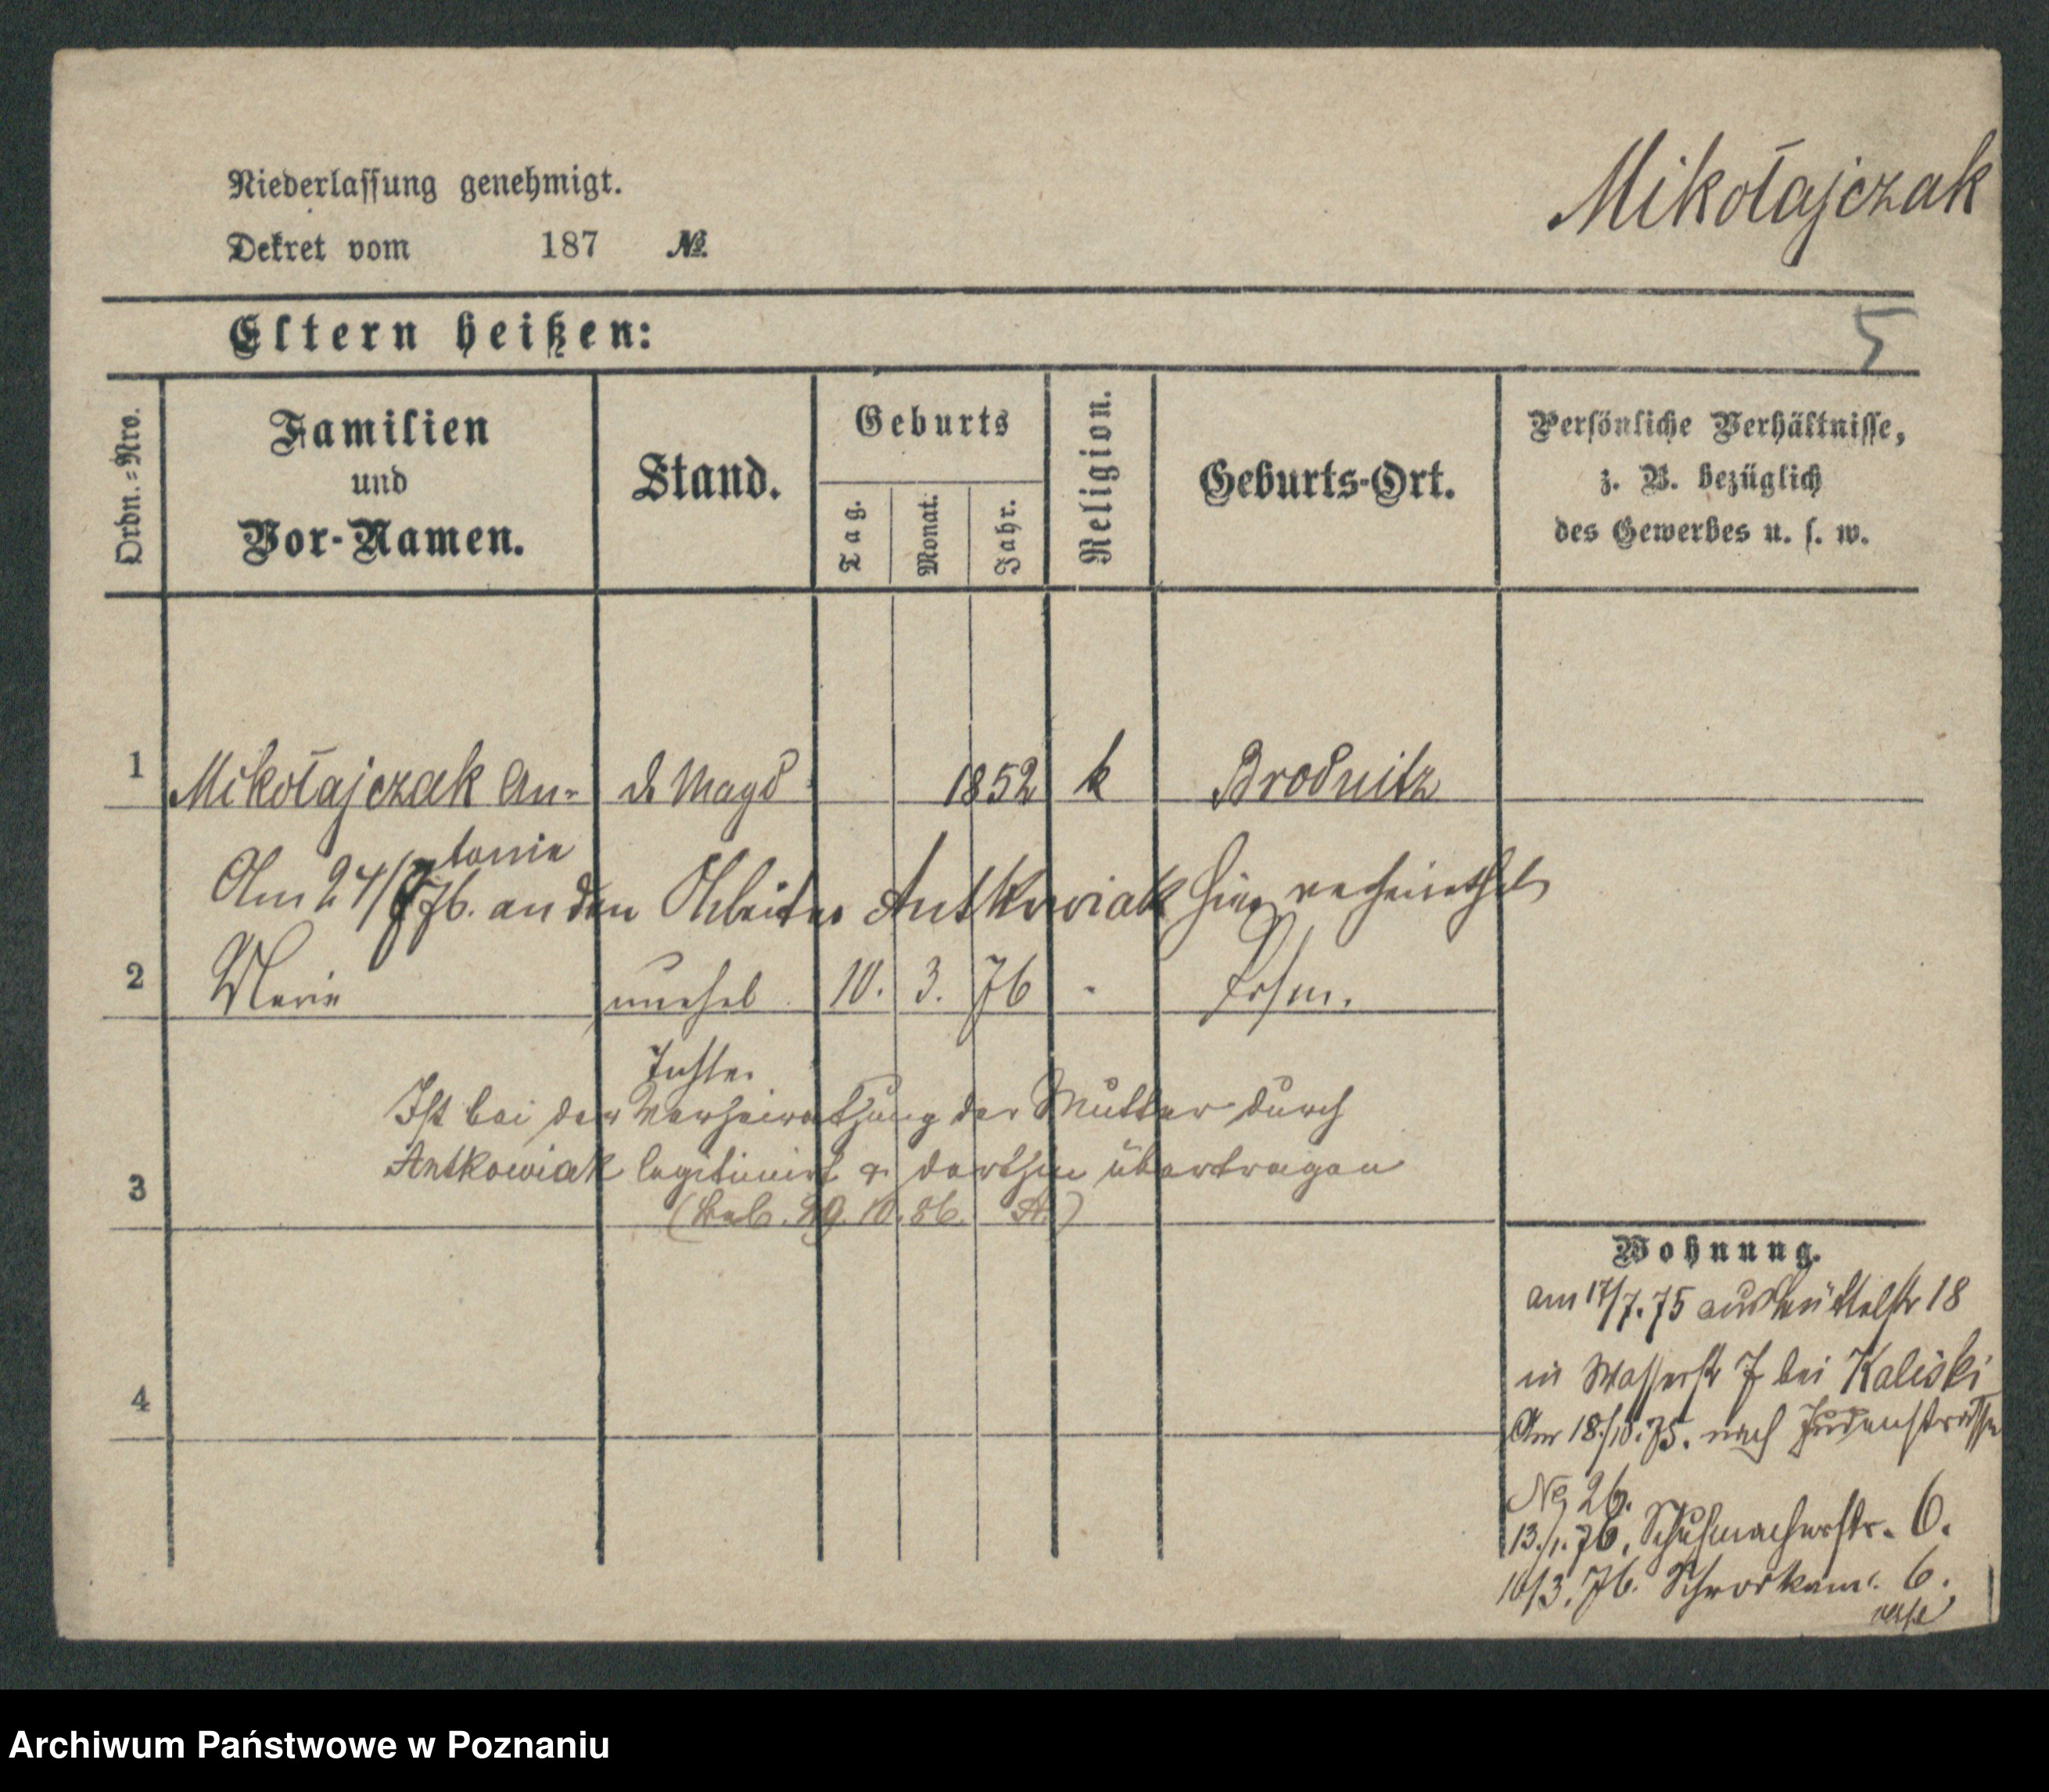 Mikołajczak
Niederlassung genehmigt.
Dekret vom 187 №.
5
Eltern heißen:
Ordn.-Nro.
Familien
und
Vor-Namen.
Stand.
Geburts
Tag.
Monat.
Jahr.
Religion.
Geburts-Ort.
Persönliche Verhältnisse,
z. B. bezüglich
des Gewerbes u. s. w.
1 Mikołajczak An- d. Magd 1852 k Brodnitz
tonie
Am 24/7 76. an den Arbeiter Antkowiak hier verheirathet
2 Marie unehel 10. 3. 76 Posen.
Tochter
Ist bei der Verheirathung der Mutter durch
3 Antkowiak legitimirt & dorthin übertragen
29. 10. 86. A.)
4
Wohnung.
am 17/7.75 aus Büttelstr 18
in Wasserstr 7 bei Kaliski
Am 18/10.75. nach Judenstrasse
No 26.
13./1.76. Schuhmacherstr. 6.
10/3.76. 6.
Archiwum Państwowe w Poznaniu